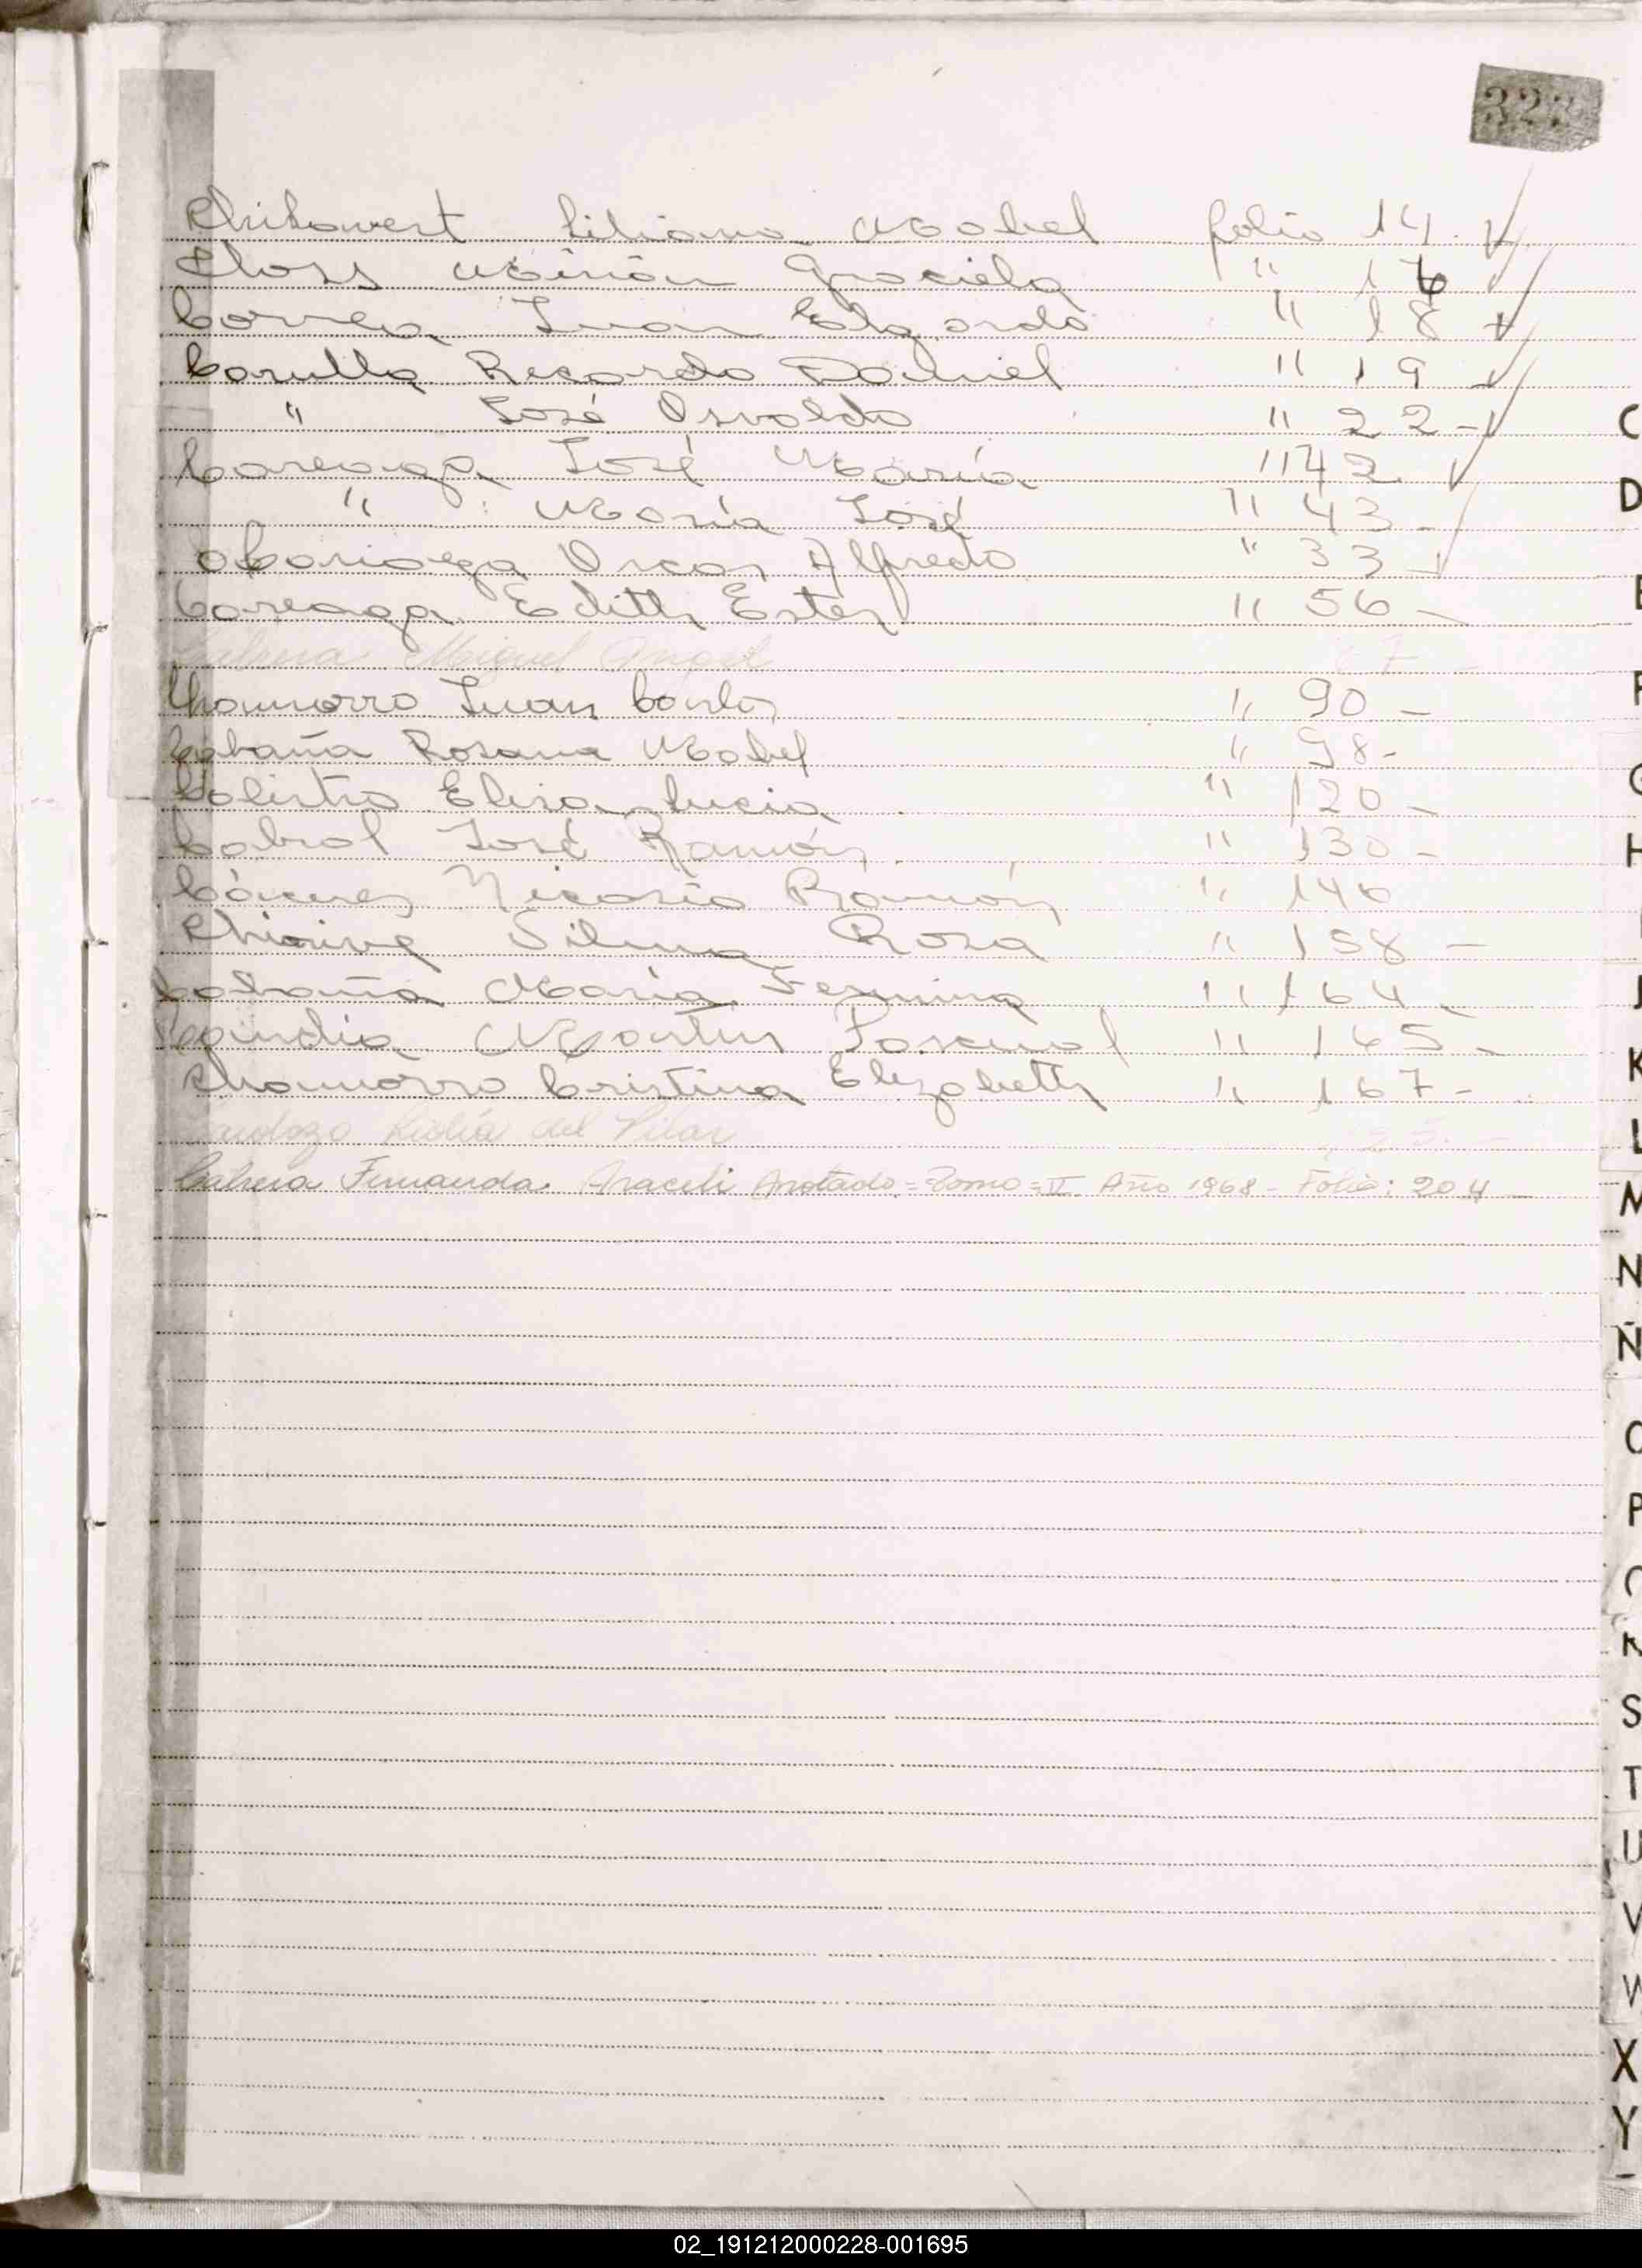 323
Liliana Mabel folio 14.
Closs Mirian Graciela " 16
Correa Juan Edgardo " 18
Carulla Ricardo Daniel " 19
" José Osvaldo " 22 -
Careaga José María " 42
" María José " 43 -
Oscar Alfredo " 33
Careaga Edith Ester " 56 -
Cabrera Miguel Angel 67 -
Chamorro Juan Carlos " 90 -
Cabaña Rosana Mabel " 98 -
Calistro Elisa Lucia " 120 -
Cabral José Ramón " 130 -
Cáceres Nicasio Ramón " 146
Silvia Rosa " 158 -
Cabaña María Fermina " 164 -
Candia Pascual " 165 -
Chamorro Cristina Elizabeth " 167 -
Cardozo Lidia del Pilar
Cabrera Fernanda Araceli Anotado = Tomo = II Año 1968 - Folio: 204
C
D
E
F
G
H
I
J
K
L
M
N
Ñ
O
P
Q
R
S
T
U
V
W
X
Y
02_191212000228-001695